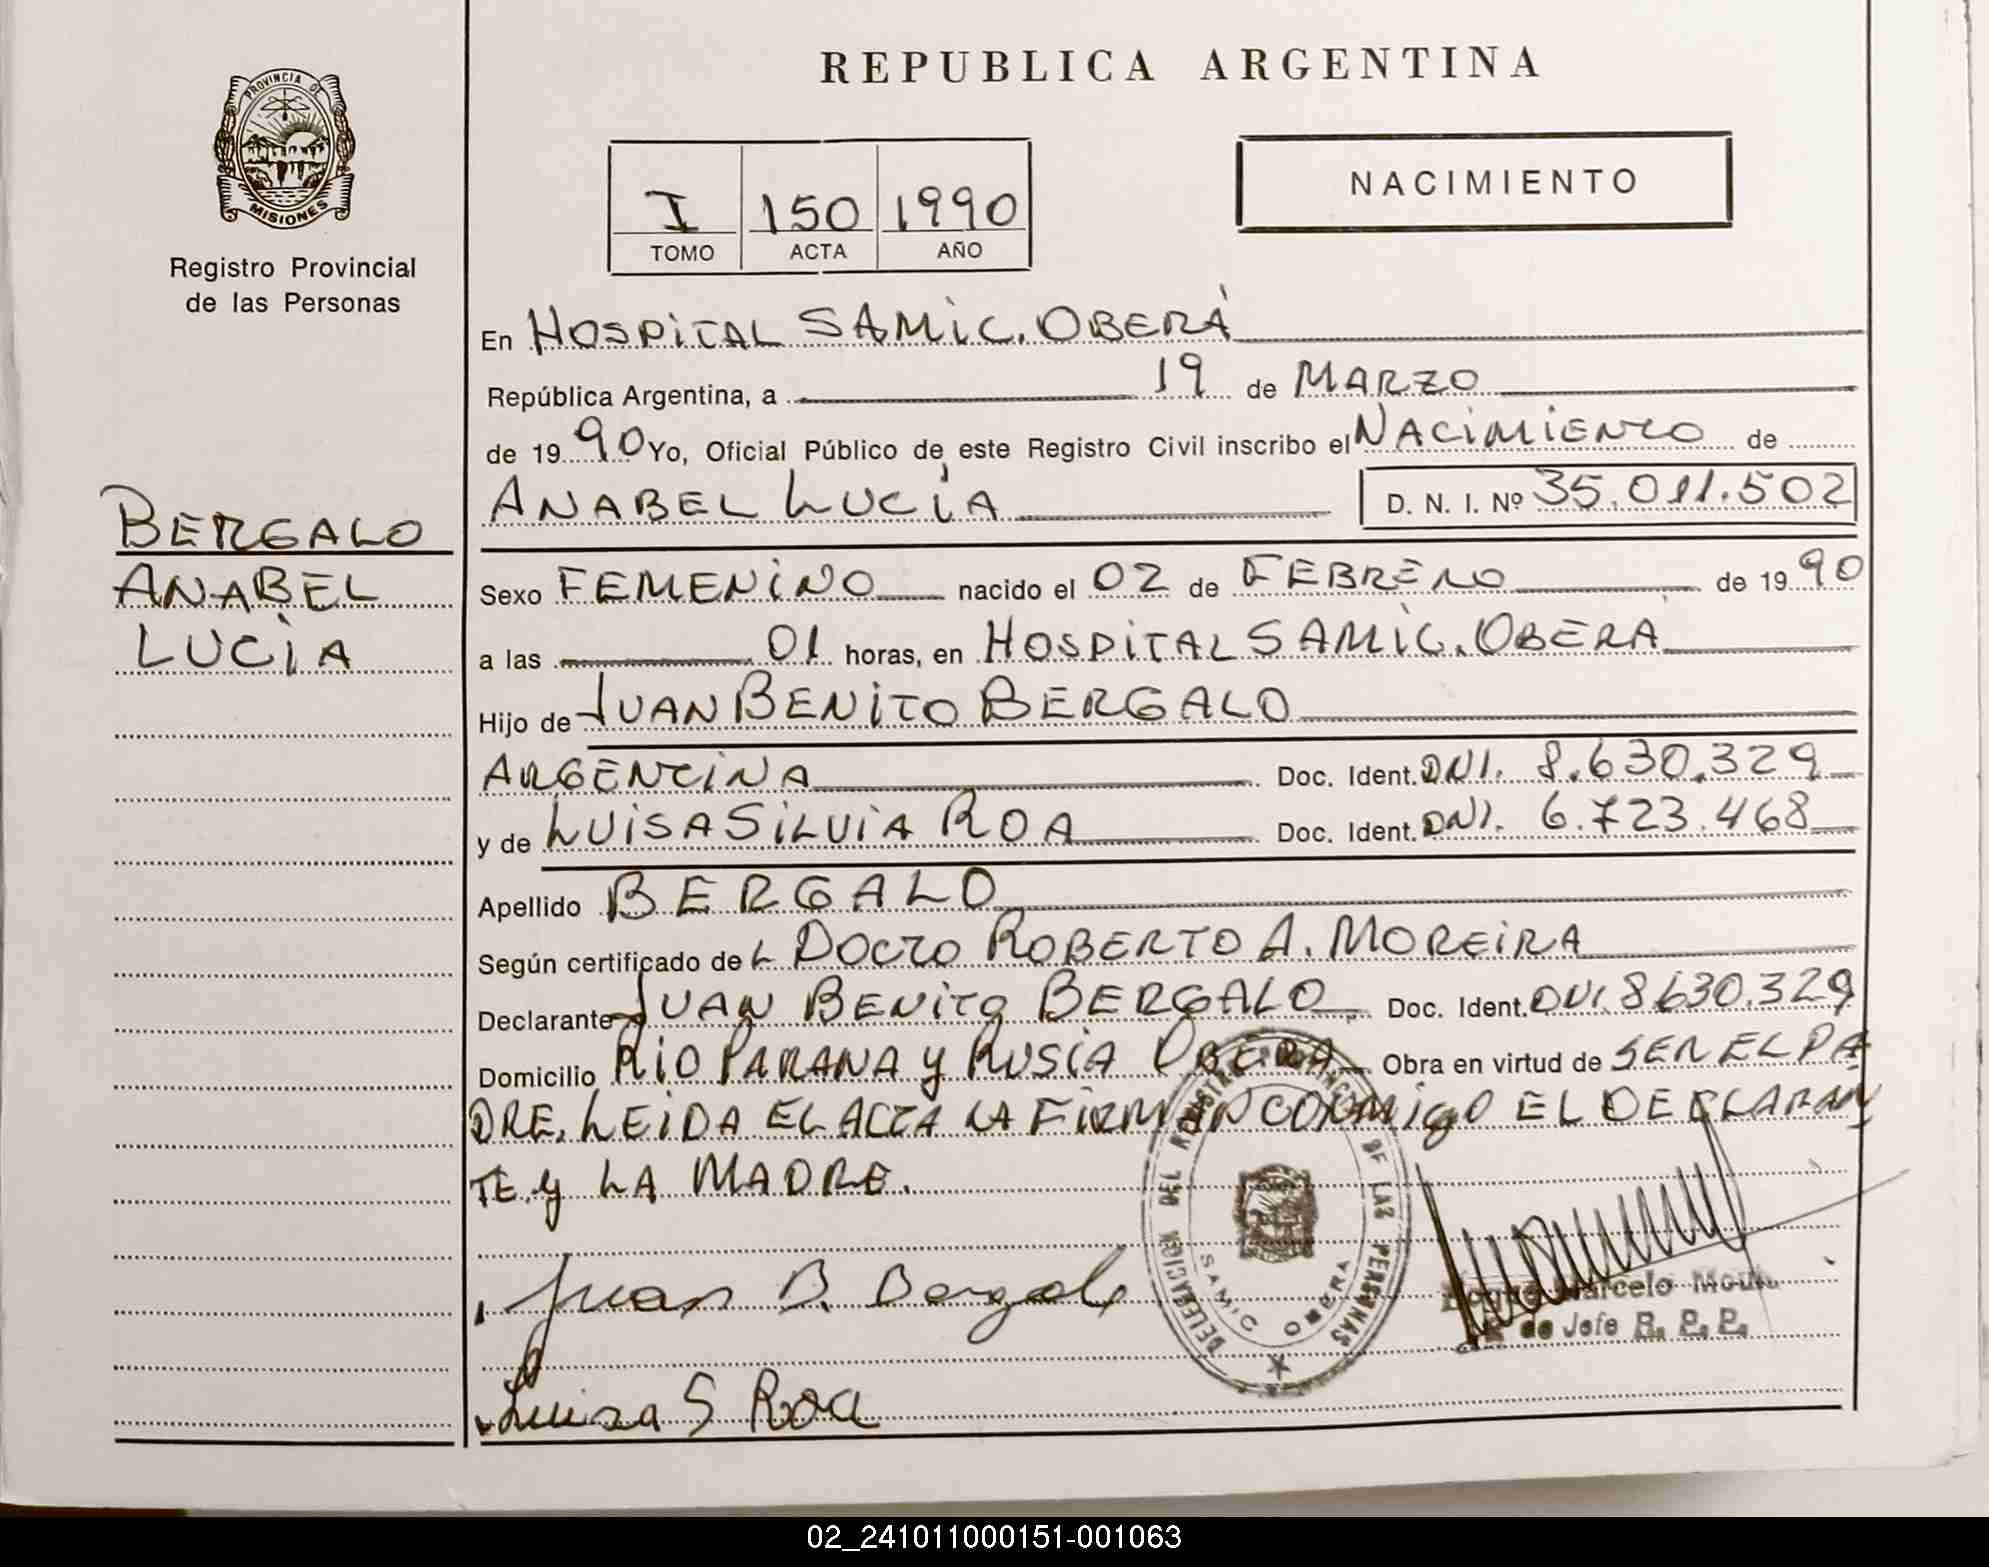 REPUBLICA ARGENTINA
PROVINCIA DE
MISIONES
Registro Provincial
de las Personas
I 150 1990
TOMO ACTA AÑO
NACIMIENTO
En HOSPITAL SAMIC. OBERÁ
República Argentina, a 19 de MARZO
de 1990 Yo, Oficial Público de este Registro Civil inscribo el NACIMIENTO de
ANABEL LUCÍA D. N. I. Nº 35.011.502
BERGALO
ANABEL
LUCÍA
Sexo FEMENINO nacido el 02 de FEBRERO de 1990
a las 01 horas, en HOSPITAL SAMIC. OBERÁ
Hijo de JUAN BENITO BERGALO
ARGENTINA Doc. Ident. DNI. 8.630.329
y de LUISA SILVIA ROA Doc. Ident. DNI. 6.723.468
Apellido BERGALO
Según certificado de L DOCTO ROBERTO A. MOREIRA
Declarante JUAN BENITO BERGALO Doc. Ident. DNI. 8630.329
Domicilio RIO PARANA Y RUSIA OBERA Obra en virtud de SER EL PA
DRE. LEIDA EL ACTA LA FIRMAN CONMIGO EL DECLARAN
TE Y LA MADRE.
DELEGACION DEL REGISTRO PROVINCIAL DE LAS PERSONAS
SAMIC OBERA
Juan B. Bergalo
Marcelo
de Jefe R. P. P.
Luisa S Roa
02_241011000151-001063